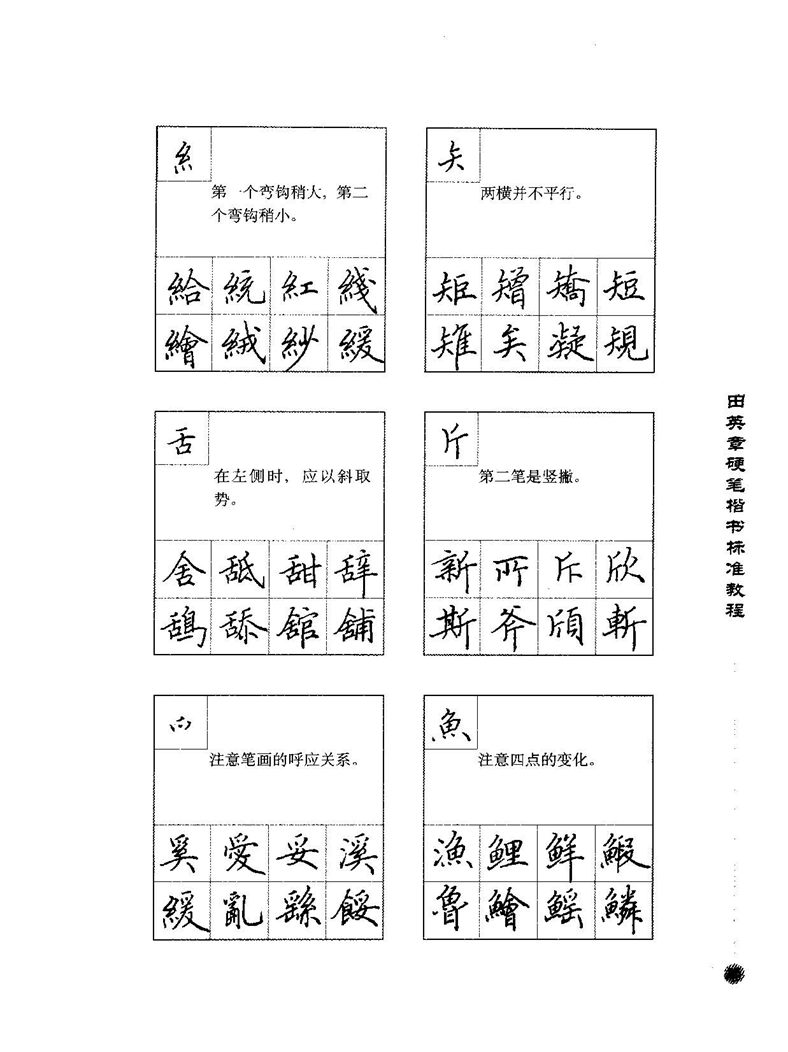 糹
第一个弯钩稍大，第二
个弯钩稍小。
給統紅綫
繪絨紗緩
矢
两横并不平行。
矩矰矯短
雉矣凝規
舌
在左侧时，应以斜取
势。
舍舐甜辞
鴰舔舘舖
斤
第二笔是竖撇。
新所斥欣
斯斧頎斬
爫
注意笔画的呼应关系。
奚愛妥溪
緩亂繇餒
魚
注意四点的变化。
漁鯉鮮鰕
魯鱠鰩鱗
田英章硬笔楷书标准教程